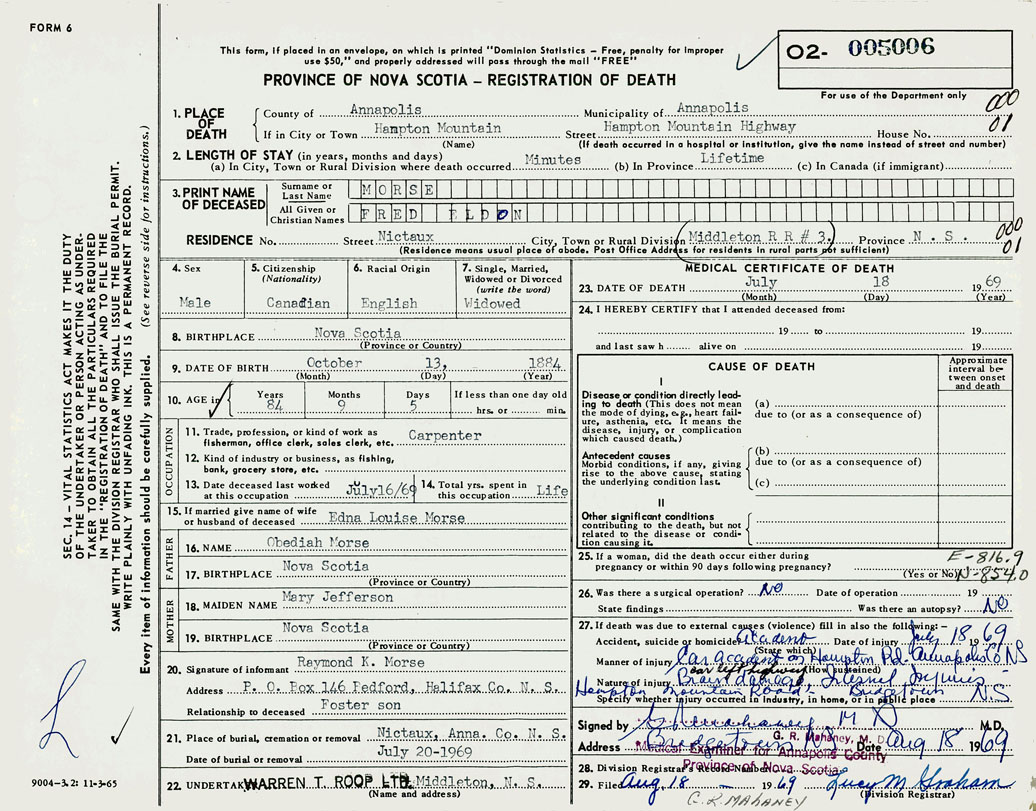 FORM 6
This form, if placed in an envelope, on which is printed "Dominion Statistics – Free, penalty for improper
use $50," and properly addressed will pass through the mail "FREE"
PROVINCE OF NOVA SCOTIA – REGISTRATION OF DEATH
02- 005006
For use of the Department only
000
01
1. PLACE OF DEATH
County of Annapolis Municipality of Annapolis
If in City or Town Hampton Mountain Street Hampton Mountain Highway House No.
(Name) (If death occurred in a hospital or institution, give the name instead of street and number)
2. LENGTH OF STAY (in years, months and days)
(a) In City, Town or Rural Division where death occurred Minutes (b) In Province Lifetime (c) In Canada (if immigrant)
3. PRINT NAME OF DECEASED
Surname or Last Name MORSE
All Given or Christian Names FRED ELDON
RESIDENCE No. Street Nictaux City, Town or Rural Division Middleton R R # 3. Province N. S.
(Residence means usual place of abode. Post Office Address for residents in rural parts not sufficient)
000
01
4. Sex
Male
5. Citizenship
(Nationality)
Canadian
6. Racial Origin
English
7. Single, Married,
Widowed or Divorced
(write the word)
Widowed
8. BIRTHPLACE Nova Scotia
(Province or Country)
9. DATE OF BIRTH October 13, 1884
(Month) (Day) (Year)
10. AGE in
Years Months Days If less than one day old
84 9 5 hrs. or min.
OCCUPATION
11. Trade, profession, or kind of work as
fisherman, office clerk, sales clerk, etc. Carpenter
12. Kind of industry or business, as fishing,
bank, grocery store, etc.
13. Date deceased last worked
at this occupation July16/69
14. Total yrs. spent in
this occupation Life
15. If married give name of wife
or husband of deceased Edna Louise Morse
FATHER
16. NAME Obediah Morse
17. BIRTHPLACE Nova Scotia
(Province or Country)
MOTHER
18. MAIDEN NAME Mary Jefferson
19. BIRTHPLACE Nova Scotia
(Province or Country)
20. Signature of informant Raymond K. Morse
Address P. O. Box 146 Bedford, Halifax Co. N. S.
Relationship to deceased Foster son
21. Place of burial, cremation or removal Nictaux, Anna. Co. N. S.
Date of burial or removal July 20-1969
22. UNDERTAKER WARREN T. ROOP LTD. Middleton, N. S.
(Name and address)
MEDICAL CERTIFICATE OF DEATH
23. DATE OF DEATH July 18 1969
(Month) (Day) (Year)
24. I HEREBY CERTIFY that I attended deceased from:
19 to 19
and last saw h alive on 19
CAUSE OF DEATH
Approximate interval between onset and death
I
Disease or condition directly leading to death (This does not mean
the mode of dying, e.g., heart failure, asthenia, etc. It means the
disease, injury, or complication
which caused death.)
(a)
due to (or as a consequence of)
Antecedent causes
Morbid conditions, if any, giving
rise to the above cause, stating
the underlying condition last.
(b)
due to (or as a consequence of)
(c)
II
Other significant conditions
contributing to the death, but not
related to the disease or condition causing it.
25. If a woman, did the death occur either during
pregnancy or within 90 days following pregnancy?
(Yes or No)
E-816.9
N-854.0
26. Was there a surgical operation? No Date of operation 19
State findings Was there an autopsy? No
27. If death was due to external causes (violence) fill in also the following:–
Accident, suicide or homicide Accident Date of injury July 18 1969
(State which)
Manner of injury Car accident on Hampton Rd. Annapolis Co NS
car left highway (How sustained)
Nature of injury Brain damage Internal Injuries
Hampton Mountain Road Bridgetown N.S.
Specify whether injury occurred in industry, in home, or in public place
Signed by M D M.D.
G. R. Mahaney, M. D.
Address Bridgetown NS Date Aug 18 1969
Medical Examiner for Annapolis County
Province of Nova Scotia
28. Division Registrar's Record Number
29. Filed Aug. 18 – 1969 Lucy M Graham
(Division Registrar)
G. R. MAHANEY
SEC. 14 – VITAL STATISTICS ACT MAKES IT THE DUTY
OF THE UNDERTAKER OR PERSON ACTING AS UNDERTAKER TO OBTAIN ALL THE PARTICULARS REQUIRED
IN THE "REGISTRATION OF DEATH" AND TO FILE THE
SAME WITH THE DIVISION REGISTRAR WHO SHALL ISSUE THE BURIAL PERMIT.
WRITE PLAINLY WITH UNFADING INK. THIS IS A PERMANENT RECORD.
Every item of information should be carefully supplied. (See reverse side for instructions.)
L
9004-3.2: 11-3-65